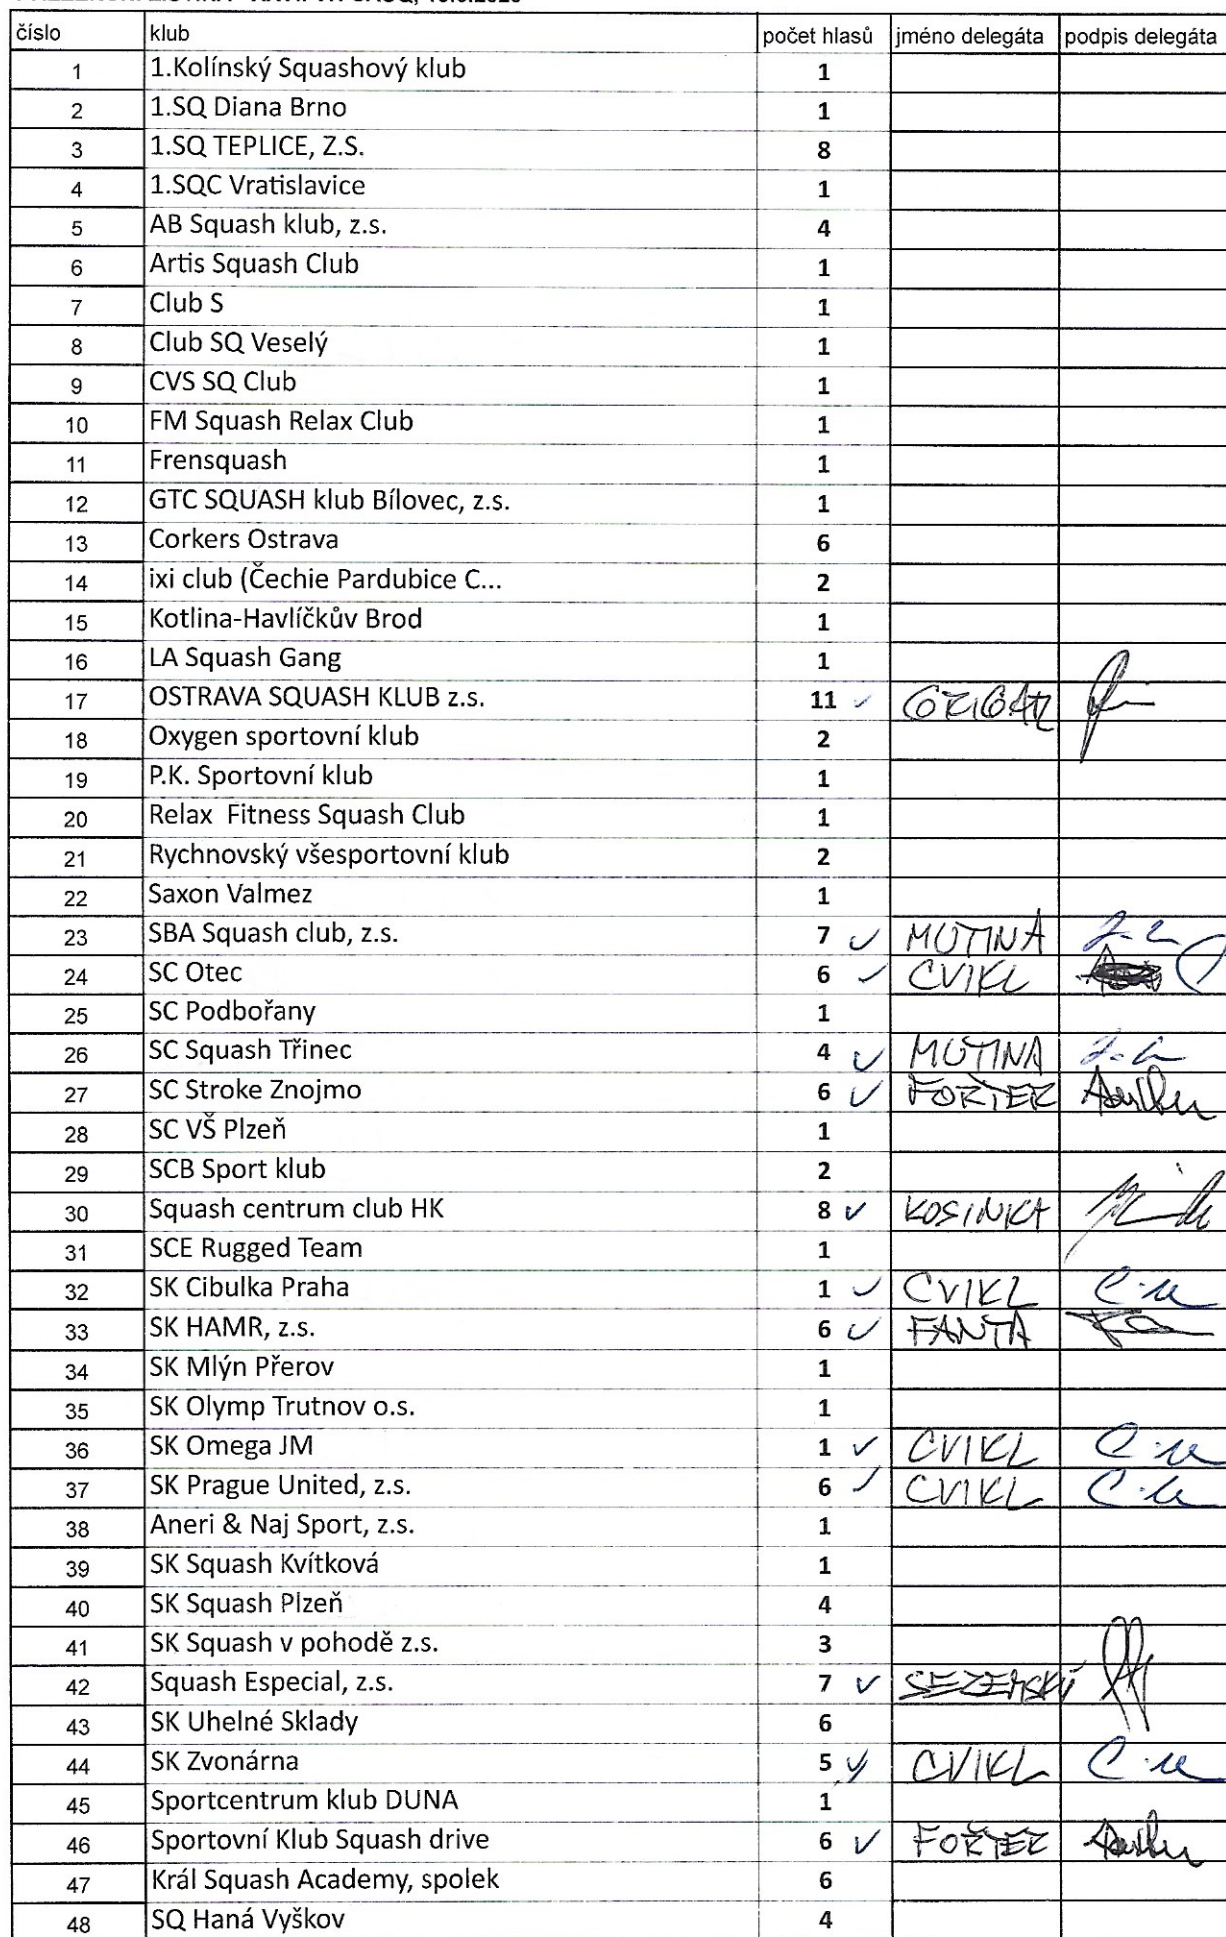 číslo klub počet hlasů jméno delegáta podpis delegáta
1 1.Kolínský Squashový klub 1
2 1.SQ Diana Brno 1
3 1.SQ TEPLICE, Z.S. 8
4 1.SQC Vratislavice 1
5 AB Squash klub, z.s. 4
6 Artis Squash Club 1
7 Club S 1
8 Club SQ Veselý 1
9 CVS SQ Club 1
10 FM Squash Relax Club 1
11 Frensquash 1
12 GTC SQUASH klub Bílovec, z.s. 1
13 Corkers Ostrava 6
14 ixi club (Čechie Pardubice C... 2
15 Kotlina-Havlíčkův Brod 1
16 LA Squash Gang 1
17 OSTRAVA SQUASH KLUB z.s. 11 ✓
18 Oxygen sportovní klub 2
19 P.K. Sportovní klub 1
20 Relax Fitness Squash Club 1
21 Rychnovský všesportovní klub 2
22 Saxon Valmez 1
23 SBA Squash club, z.s. 7 ✓ MUTINA
24 SC Otec 6 ✓ CVIKL
25 SC Podbořany 1
26 SC Squash Třinec 4 ✓ MUTINA
27 SC Stroke Znojmo 6 ✓ FOŘTER
28 SC VŠ Plzeň 1
29 SCB Sport klub 2
30 Squash centrum club HK 8 ✓ KOSINKA
31 SCE Rugged Team 1
32 SK Cibulka Praha 1 ✓ CVIKL
33 SK HAMR, z.s. 6 ✓ FANTA
34 SK Mlýn Přerov 1
35 SK Olymp Trutnov o.s. 1
36 SK Omega JM 1 ✓ CVIKL
37 SK Prague United, z.s. 6 ✓ CVIKL
38 Aneri & Naj Sport, z.s. 1
39 SK Squash Kvítková 1
40 SK Squash Plzeň 4
41 SK Squash v pohodě z.s. 3
42 Squash Especial, z.s. 7 ✓ SEZEMSKÝ
43 SK Uhelné Sklady 6
44 SK Zvonárna 5 ✓ CVIKL
45 Sportcentrum klub DUNA 1
46 Sportovní Klub Squash drive 6 ✓ FOŘTER
47 Král Squash Academy, spolek 6
48 SQ Haná Vyškov 4